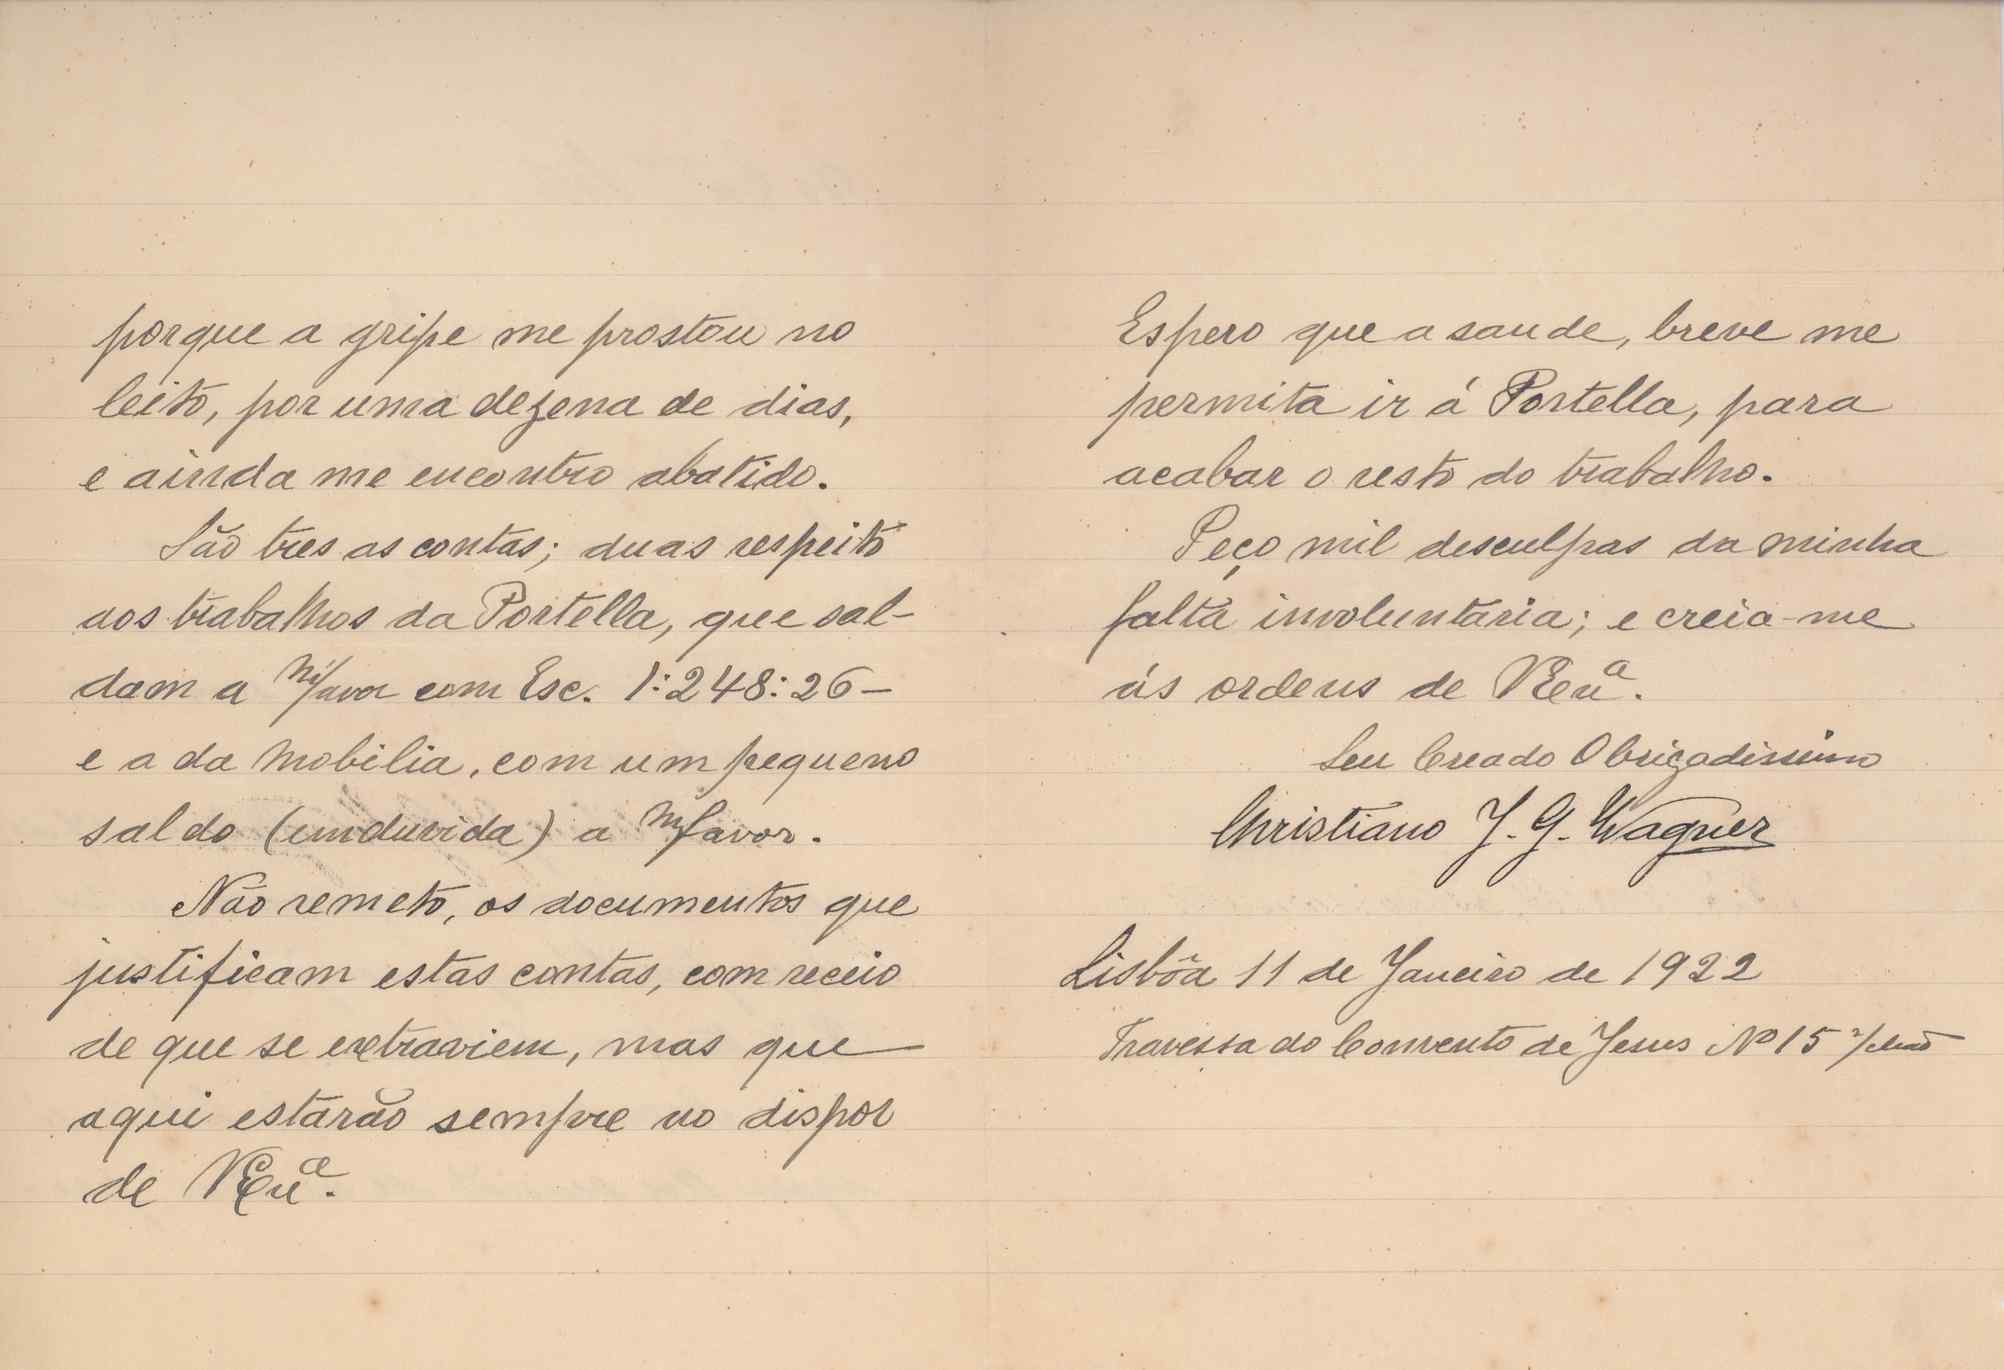 porque a gripe me prostou no
leito, por uma dezena de dias,
e ainda me encontro abatido.
São tres as contas; duas respeito
aos trabalhos da Portella, que sal-
dam a m/favor com Esc. 1:248:26-
e a da mobilia, com um pequeno
saldo (emduvida) a m/favor.
Não remeto, os documentos que
justificam estas contas, com receio
de que se extraviem, mas que
aqui estarão sempre ao dispor
de VExª.
Espero que a saude, breve me
permita ir á Portella, para
acabar o resto do trabalho.
Peço mil desculpas da minha
falta involuntaria; e creia-me
ás ordens de VExª.
Seu Creado Obrigadissimo
Christiano J. G. Wagner
Lisbôa 11 de Janeiro de 1922
Travessa do Convento de Jesus Nº 15